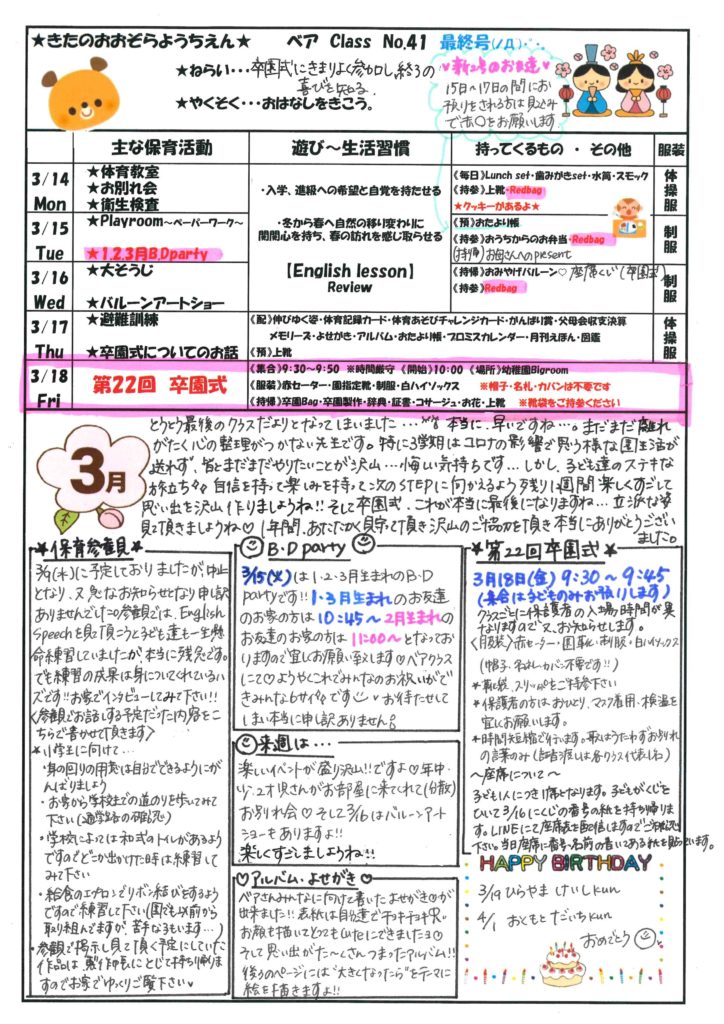 ★きたのおおぞらようちえん★　ベア　Class　No.41　最終号
★ねらい･･･卒園式にきまりよく参加し、終了の
喜びを知る。
★やくそく･･･おはなしをきこう。
♥新2号のお友達♥
15日〜17日の間にお
預りをされる方は見込み
で赤○をお願いします
主な保育活動　遊び〜生活習慣　持ってくるもの・その他　服装
3/14
Mon
★体育教室
★お別れ会
★衛生検査
・入学、進級への希望と自覚を持たせる
《毎日》Lunch set・歯みがきset・水筒・スモック
《持参》上靴・Redbag
★クッキーがあるよ★
体操服
3/15
Tue
★Playroom〜ペーパーワーク〜
★1.2.3月B.Dparty
・冬から春へ自然の移り変わりに
関関心を持ち、春の訪れを感じ取らせる
《預》おたより帳
《持参》おうちからのお弁当・Redbag
(持帰)お母さんへのpresent
制服
3/16
Wed
★大そうじ
★バルーンアートショー
【English lesson】
Review
《持帰》おみやげバルーン♡ 座席くじ(卒園式)
《持参》Redbag
制服
3/17
Thu
★避難訓練
★卒園式についてのお話
《配》伸びゆく姿・体育記録カード・体育あそびチャレンジカード・がんばり賞・父母会収支決算
メモリーズ・よせがき・アルバム・おたより帳・プロミスカレンダー・月刊えほん・図鑑
《預》上靴
体操服
3/18
Fri
第22回　卒園式
《集合》9:30〜9:50　※時間厳守　《開始》10:00　《場所》幼稚園Bigroom
《服装》赤セーター・園指定靴・制服・白ハイソックス　※帽子・名札・カバンは不要です
《持帰》卒園Bag・卒園製作・辞典・証書・コサージュ・お花・上靴　※靴袋をご持参ください
3月
とうとう最後のクラスだよりとなってしまいました…本当に、早いですね…。まだまだ離れ
がたく心の整理がつかない先生です。特に3学期はコロナの影響で思う様な園生活が
送れず、皆とまだまだやりたいことが沢山…悔しい気持ちです…しかし、子ども達のステキな
旅立ち 自信を持って楽しみを持って次のSTEPに向かえるよう残り1週間楽しくすごして
思い出を沢山作りましょうね!!そして卒園式、これが本当に最後になりますね…立派な姿
見て頂きましょうね♡ 1年間、あたたかく見守って頂き沢山のご協力を頂き本当にありがとうござい
ました。
★保育参観★
3/9(水)に予定しておりましたが中止
となり、又急なお知らせとなり申し訳
ありませんでした 参観では、English
Speechを見て頂こうと子ども達も一生懸
命練習していましたが、本当に残念です。
でも練習の成果は身についてくれているハ
ズです!!お家でインタビューしてみて下さい!!
〈参観でお話しする予定だった内容をこ
ちらで書かせて頂きます〉
*小学生に向けて…
・身の回りの用意は自分でできるようにが
んばりましょう
・お家から学校までの道のりを歩いてみて
下さい(通学路の確認)
・学校によっては和式のトイレがあるよう
ですのでどこか出かけた時は練習して
みて下さい
・給食のエプロンでリボン結びをするよう
ですので練習して下さい(園でも以前から
取り組んでますが、苦手な子もいます…)
・参観で掲示し見て頂く予定にしていた
作品は、製作帳にとじて持ち帰りま
すのでお家でゆっくりご覧下さい
B・D party
3/15(火)は1・2・3月生まれのB・D
partyです!! 1・3月生まれのお友達
のお家の方は10:45〜2月生まれの
お友達のお家の方は11:00〜となってお
りますので宜しくお願い致します♡ベアクラス
にとって♡ようやくこれでみんなのお祝いがで
きみんな6才です お待たせして
しまい本当に申し訳ありません!
来週は…
楽しいイベントが盛り沢山!!ですよ♡年中・
少・2才児さんがお部屋に来てくれて(分散)
お別れ会♡そして3/16はバルーンアート
ショーもありますよ!!
楽しくすごしましょうね!!
♡アルバム・よせがき♡
ベアさんみんなに向けて書いたよせがきが
出来ました!!表紙は自分達でチョキチョキR。
お顔も描いてとってもCuteにできました
そして思い出がた〜くさんつまったアルバム!!
後ろのページには"大きくなったら"をテーマに
絵を描きますよ!!
★第22回卒園式★
3月18日(金)9:30〜9:45
(集合は子どものみお預りします)
クラスごとに保護者の入場時間が異
なりますので又、お知らせします。
〈服装〉赤セーター・園靴・制服・白ハイソックス
(帽子、名札、カバン不要です!!)
*靴袋、スリッパをご持参下さい
*保護者の方はおひとり、マスク着用、検温を
宜しくお願いします。
*時間短縮で行います。歌はうたわずお別れ
の言葉のみ(証書渡しは各クラス代表1名)
〜座席について〜
子ども1人につき1席となります。子どもがくじを
ひいて3/16にくじの番号の紙を持ち帰りま
す。LINEにて座席表を配信しますのでご確認
下さい。当日座席に番号、名前の書いてある紙を貼っています。
HAPPY BIRTHDAY
3/19 ひらやま けいしkun
4/1 おくもと だいちkun
おめでとう